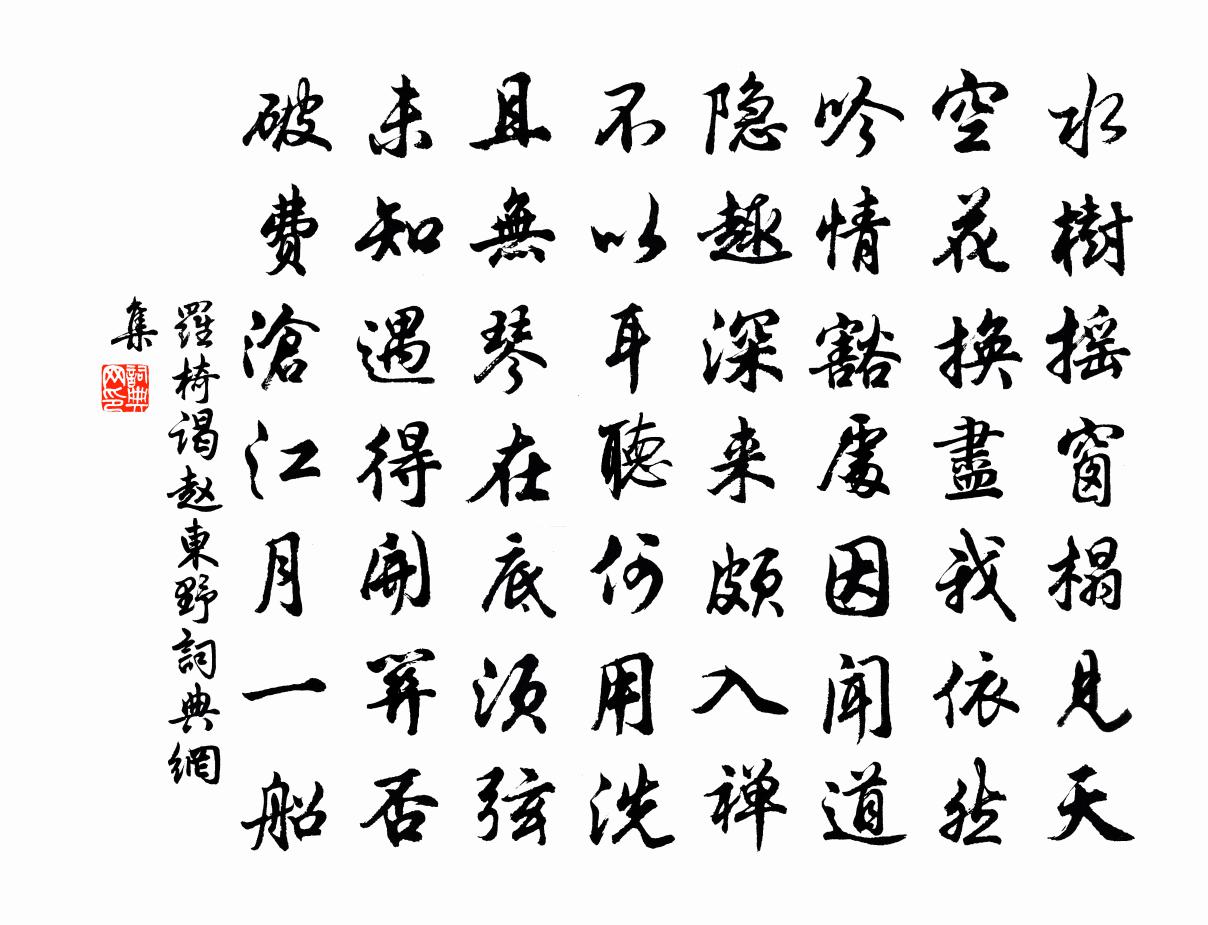 水樹摇窗榻見天
空花換盡我依然
吟情豁處因聞道
隐趣深来頗入禅
不以耳聽何用洗
且無琴在底须弦
未知遇得開笄否
破费滄江月一船
羅椅谒赵東野詞典網
集
詞典网印